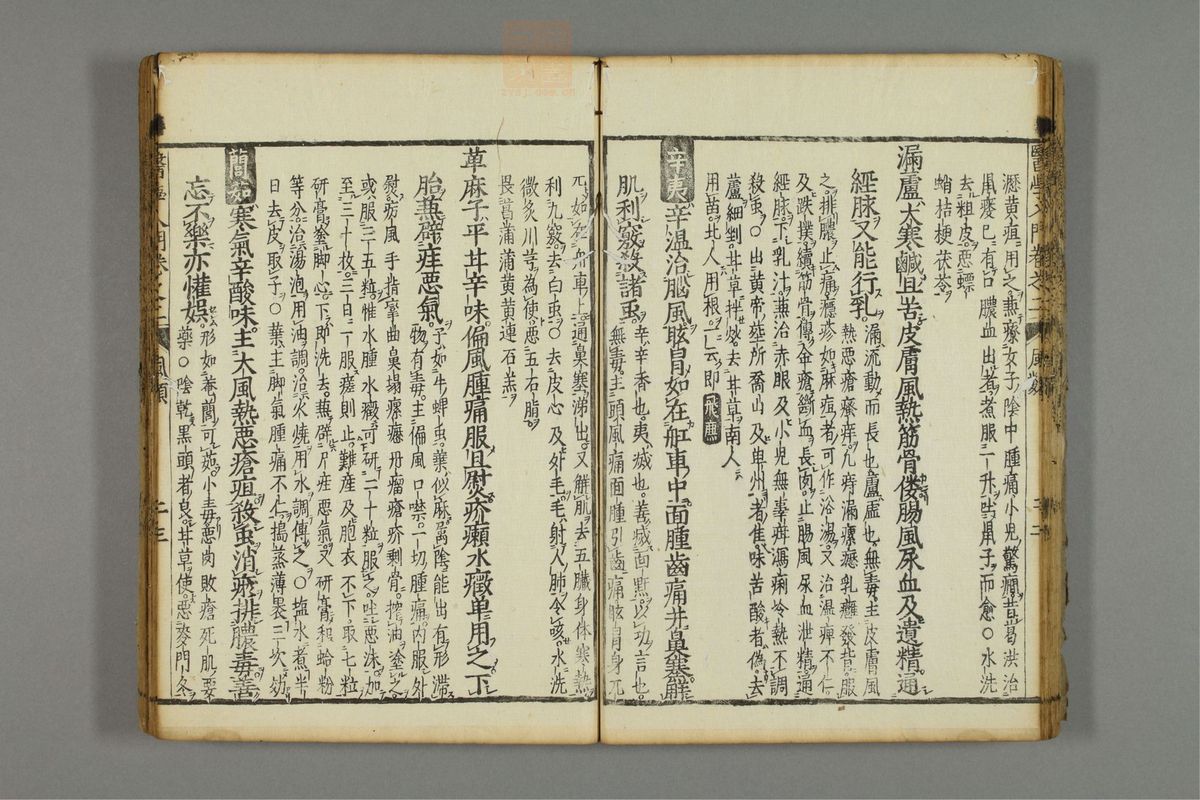 醫學入門卷之二 風類
瀝黃疸用之蒸療女子陰中腫痛小兒驚癇昔葛洪治
鼠瘻已有口膿血出者煮服一升
去粗皮惡螵
蛸桔梗茯苓
漏盧大寒鹹且苦皮膚風熱筋骨僂腸風尿血及遺精通
經脉又能行乳漏流動而長也盧盧也無毒主皮膚風
熱惡瘡癢痒凡痔漏瘰癧乳癰發背服
之排膿止痛癮疹如麻疽者可作浴湯又治濕痺不仁
及跌撲續筋骨傅金瘡斷血長肉止腸風尿血泄精通
經脉下乳汁蒸治赤眼及小兒無辜疳瀉痢冷熱不調
殺虫○出黃帝塟所喬山及單州者佳味苦酸者偽去
蘆細剉甘草拌炒去甘草南人
用苗北人用根一云即飛廉
辛夷辛溫治腦風眩冒如在舡車中面腫齒痛并鼻塞解
肌利竅殺諸虫辛辛香也夷滅也善滅面䵟以功言也
無毒主頭風痛面腫引齒痛眩冒身兀
兀如在舟車上通鼻塞涕出又解肌去五臟身体寒熱
利九竅去白虫○去皮心及外毛毛射入肺令咳水洗
微炙川芎為使惡五石脂
畏菖蒲蒲黃黃連石羔
草麻子平甘辛味偏風腫痛服且熨疥癩水癥單用之下
胎蒸辟疰惡氣子如牛蜱虫藥似麻葛陰能出有形滯
物有毒主偏風口噤一切腫痛內服外
熨疠風手指攣曲鼻塌瘰癧丹瘤瘡疥剩骨搾油塗之
或服三五粒惟水腫水癥可研二十粒服之吐惡沫加
至三十枚三日一服瘥則止難産及胞衣不下取七粒
研膏塗脚心下即洗去蒸辟斤疰惡氣又研膏和蛤粉
等分治湯泡用油調治火燒用水調傅之○塩水煮半
日去皮取子○葉主脚氣腫痛不仁搗蒸薄裹三次効
寒氣辛酸味主大風熱惡瘡疽殺虫消瘀排膿毒善
忘不樂亦懽娛形如菴䕡可茹小毒惡肉敗瘡死肌要
藥○陰乾黑頭者良甘草使惡麥門冬